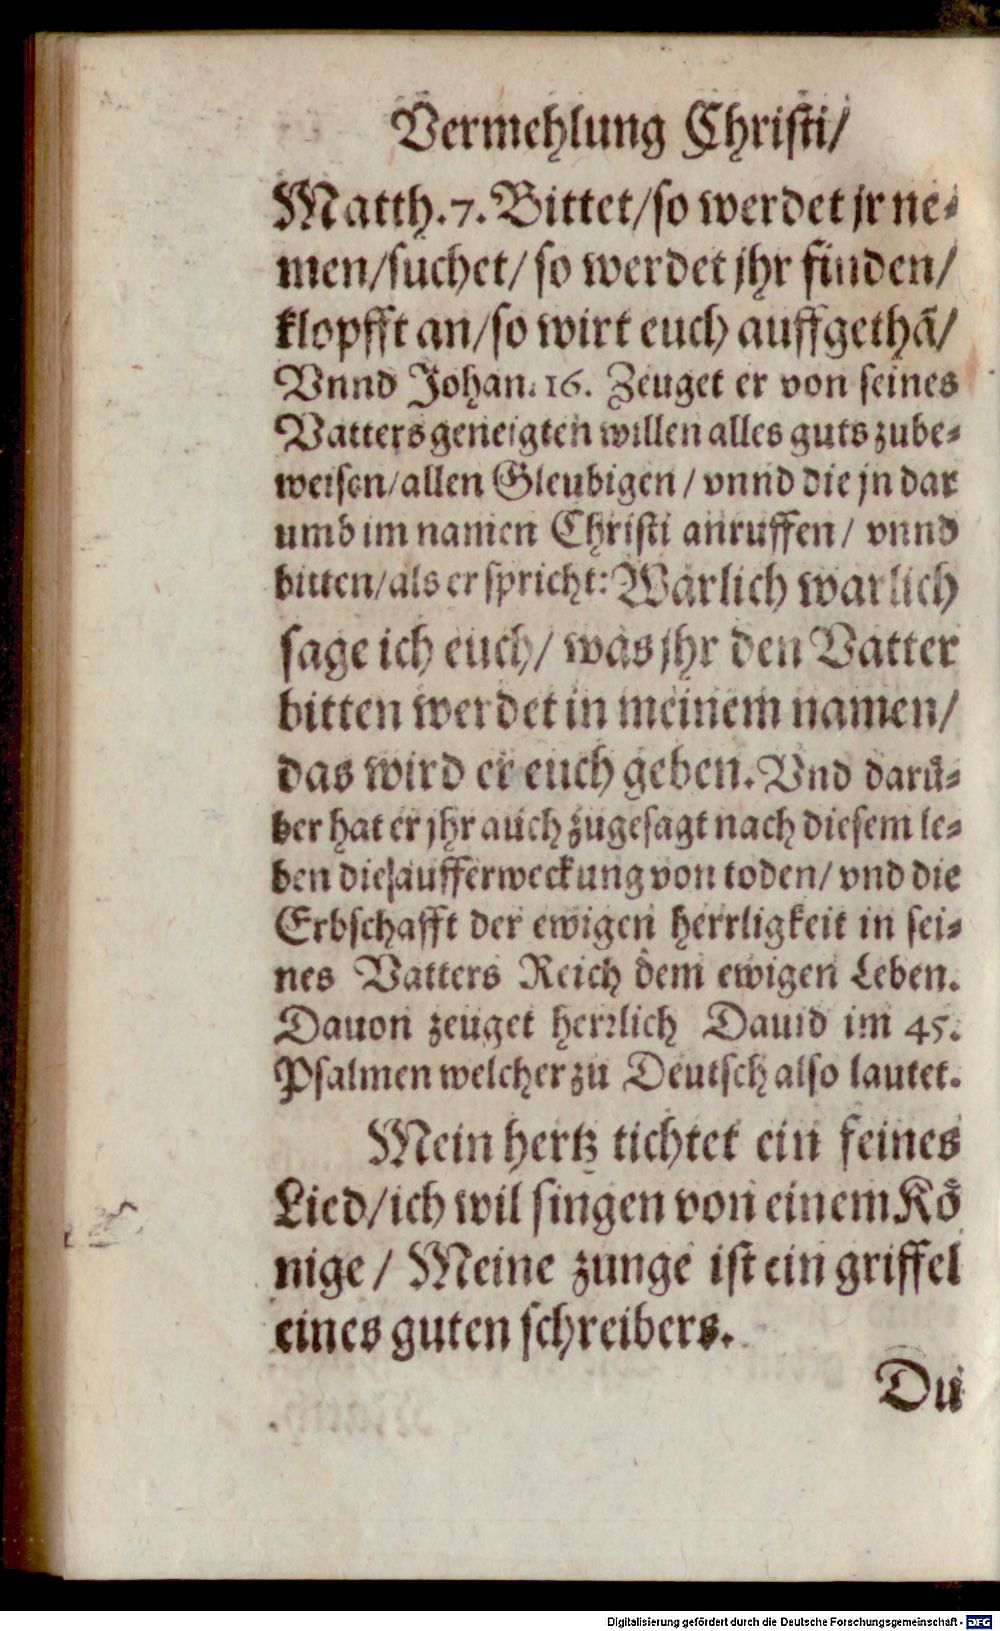 Vermehlung Christi/
Matth. 7. Bittet/so werdet jr ne⸗
men/suchet/ so werdet jhr finden/
klopfft an/so wirt euch auffgethã/
Vnnd Johan. 16. Zeuget er von seines
Vatters geneigten willen alles guts zube⸗
weisen/allen Gleubigen/ vnnd die jn dar
umb im namen Christi anruffen/ vnnd
bitten/als er spricht: Warlich warlich
sage ich euch/ was jhr den Vatter
bitten werdet in meinem namen/
das wird er euch geben. Vnd daruͤ⸗
ber hat er jhr auch zugesagt nach diesem le⸗
ben die aufferweckung von toden/ vnd die
Erbschafft der ewigen herrligkeit in sei⸗
nes Vatters Reich dem ewigen Leben.
Dauon zeuget herꝛlich Dauid im 45.
Psalmen welcher zu Deutsch also lautet.
Mein hertz tichtet ein feines
Lied/ich wil singen von einem Koͤ
nige/ Meine zunge ist ein griffel
eines guten schreibers.
Du
Digitalisierung gefördert durch die Deutsche Forschungsgemeinschaft - DFG